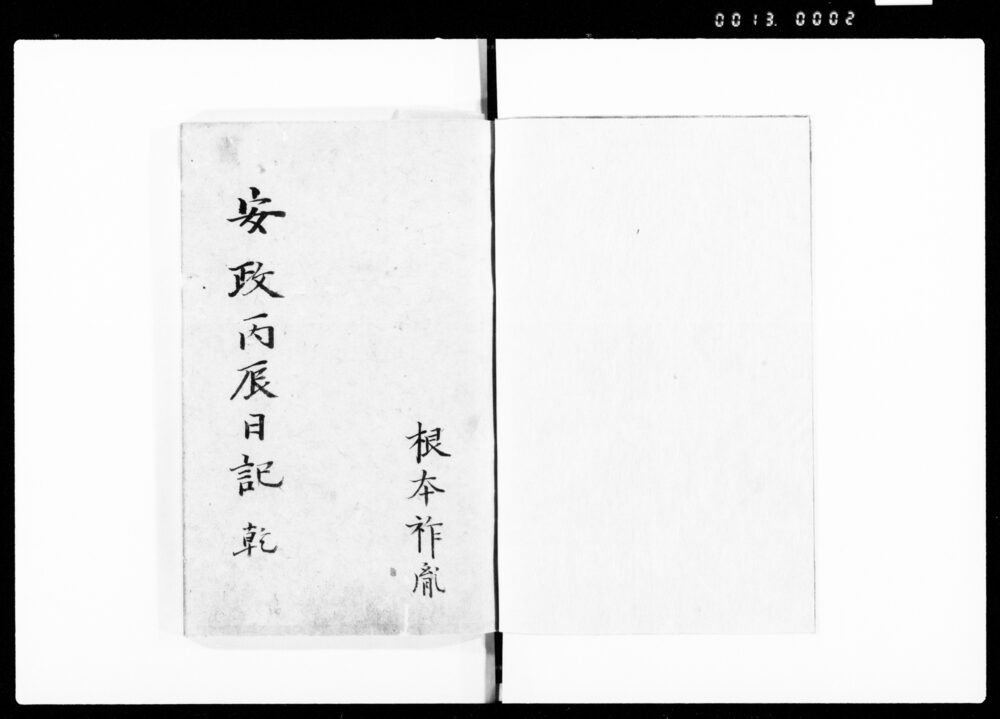 0013. 0002
根本祚胤
安政丙辰日記 乾